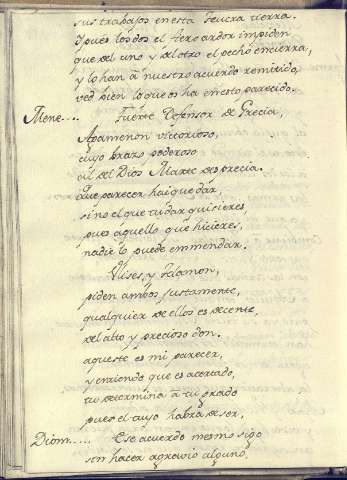 sus trabajos en esta teucra tierra.
Y pues los dos el fero ardor impiden
que del uno y del otro el pecho encierra,
y lo han a nuestro acuerdo remitido,
ved bien lo que os ha en esto parecido.
Mene.... Fuerte Defensor de Grecia,
Agamenon victorioso,
cuyo brazo poderoso
al del Dios Marte desprecia.
Que parecer hai que dar,
sino el que tu dar quisieres,
pues aquello que hicieres,
nadie lo puede emmendar.
Ulises, y Telamon,
piden ambos justamente,
qualquier de ellos es decente,
del alto y precioso don.
aqueste es mi parecer,
y entiendo que es acertado,
tu determina à tu grado
pues el tuyo habrà de ser.
Diom..... Ese acuerdo mesmo sigo
sin hacer agravio alguno.